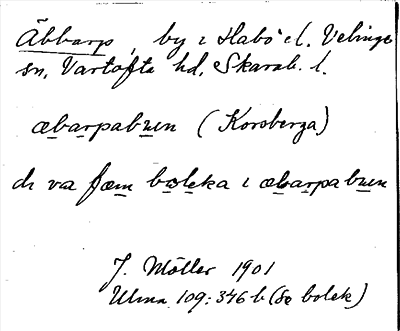 Äbbarp, by i Habo el. Velinge
sn, Vartofta hd, Skarab. l.
æbarpabuen (Korsberga)
di vaz fæm boleka i æbarpabuen
J. Möller 1901
Ulma 109:346 b (Se bolek)